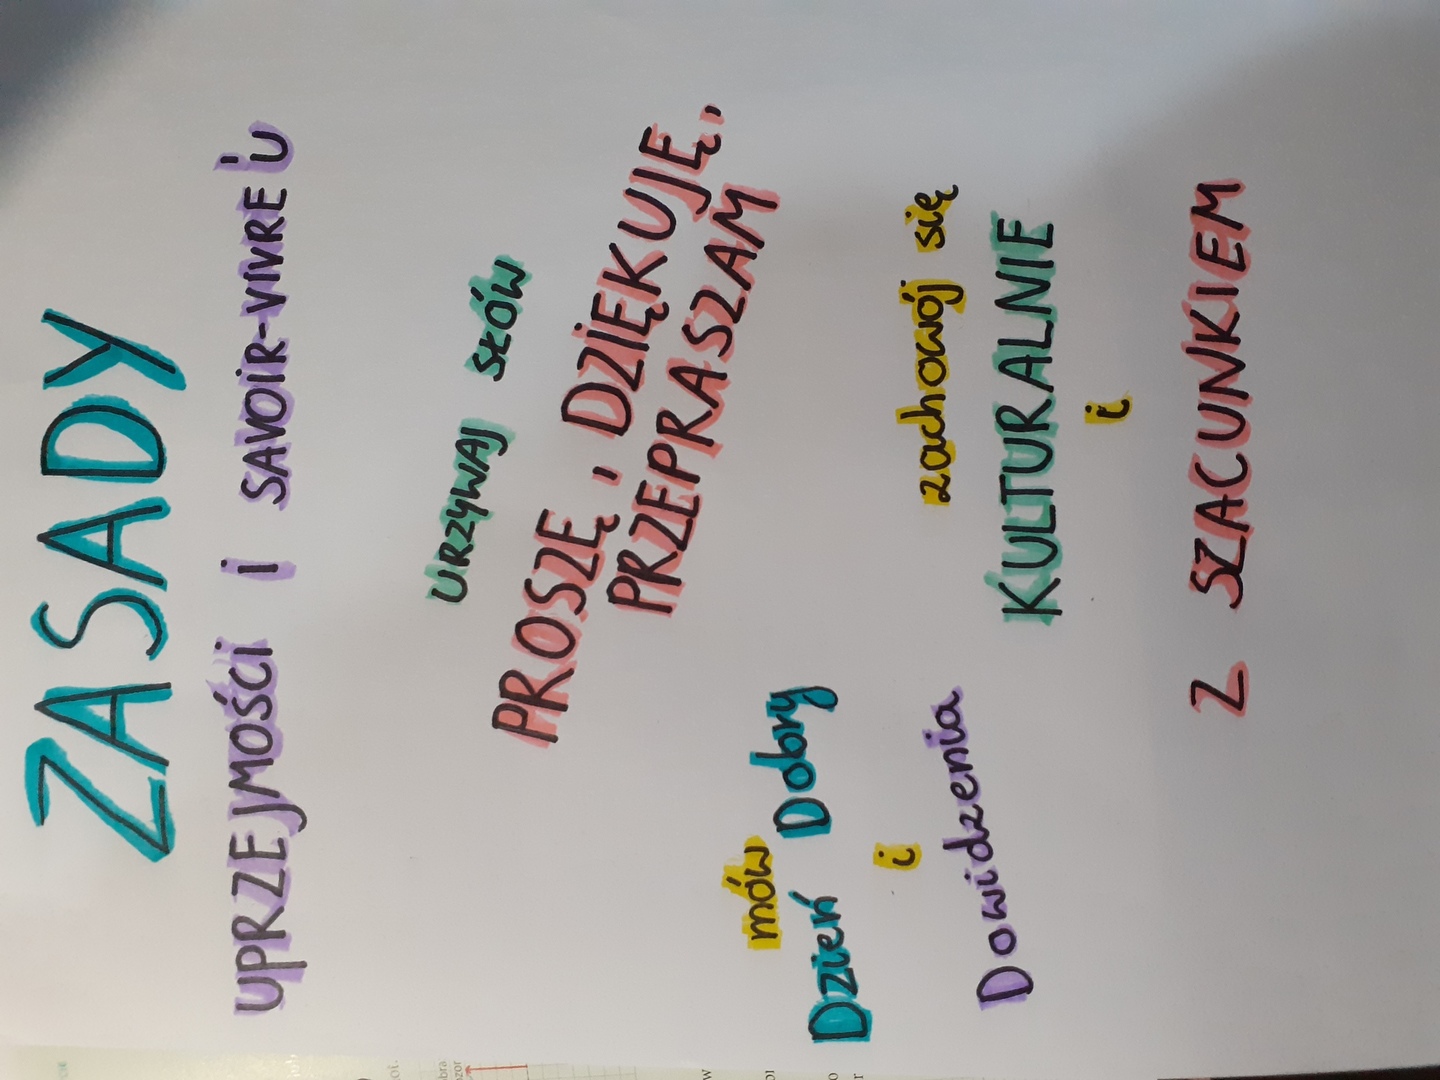 ZASADY
UPRZEJMOŚCI I SAVOIR-VIVRE'U
URZYWAJ SŁÓW
PROSZĘ, DZIĘKUJĘ,
PRZEPRASZAM
mów
Dzień Dobry
i
Dowidzenia
zachowój się
KULTURALNIE
i
Z SZACUNKIEM